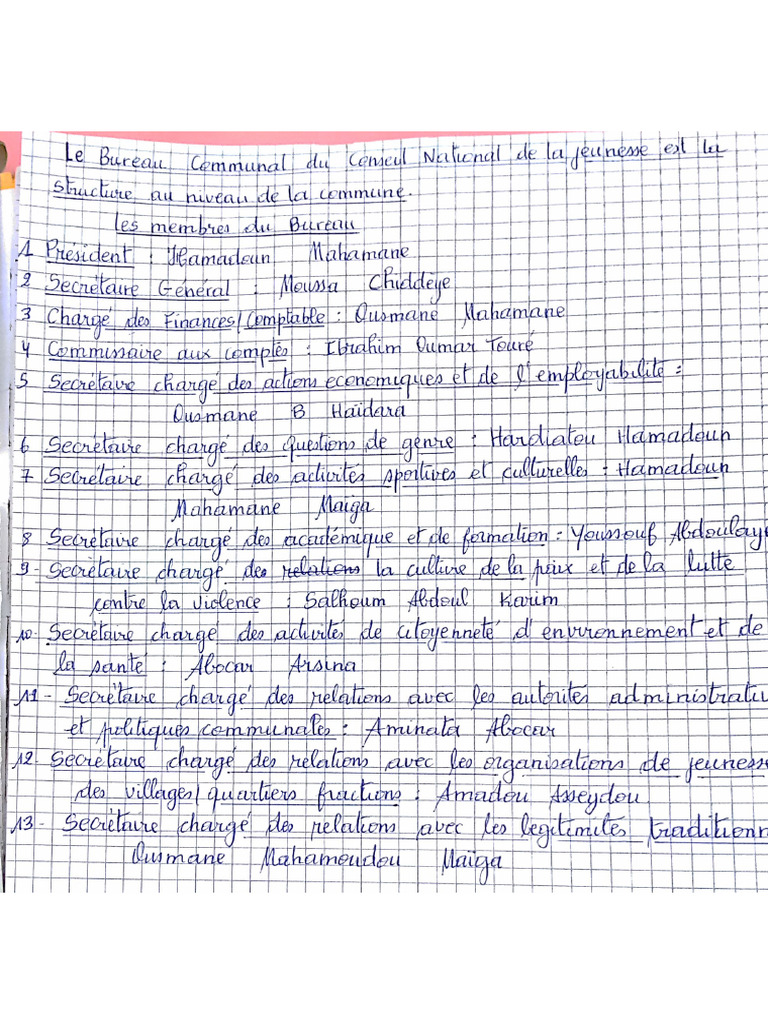 Le Bureau Communal du Conseil National de la jeunesse est la
structure au niveau de la commune.
les membres du Bureau
1 Président : Hamadoun Mahamane
2 Secrétaire Général : Moussa Chiddéye
3 Chargé des Finances/Comptable : Ousmane Mahamane
4 Commissaire aux comptes : Ibrahim Oumar Touré
5 Secrétaire chargé des actions economiques et de l'employabilité :
Ousmane B Haïdara
6 Secrétaire chargé des questions de genre : Hardiatou Hamadoun
7 Secrétaire chargé des activités sportives et culturelles : Hamadoun
Mahamane Maïga
8 Secrétaire chargé des académique et de formation : Youssouf Abdoulaye
9- Secrétaire chargé des relations la culture de la paix et de la lutte
contre la violence : Salhoum Abdoul Karim
10- Secrétaire chargé des activités de citoyenneté d'environnement et de
la santé : Abocar Arsina
11- Secrétaire chargé des relations avec les autorités administrativ
et politiques communales : Aminata Abocar
12- Secrétaire chargé des relations avec les organisations de jeunesse
des villages/quartiers fractions : Amadou Asseydou
13- Secrétaire chargé des relations avec les legitimités traditionn
Ousmane Mahamoudou Maïga